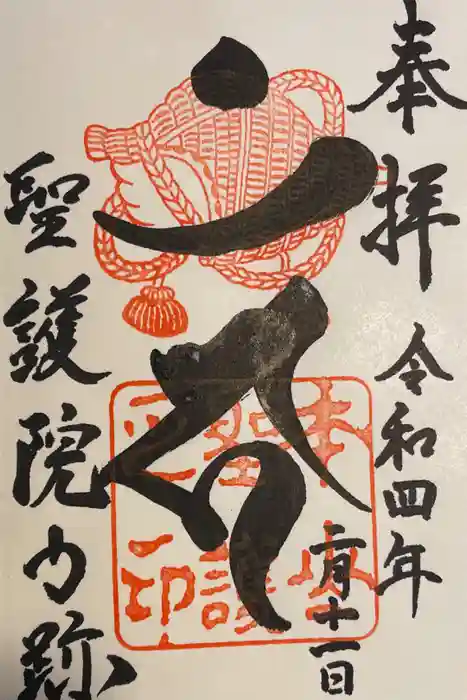 奉拝
令和四年
二月十一日
聖護院門跡
本山
聖護